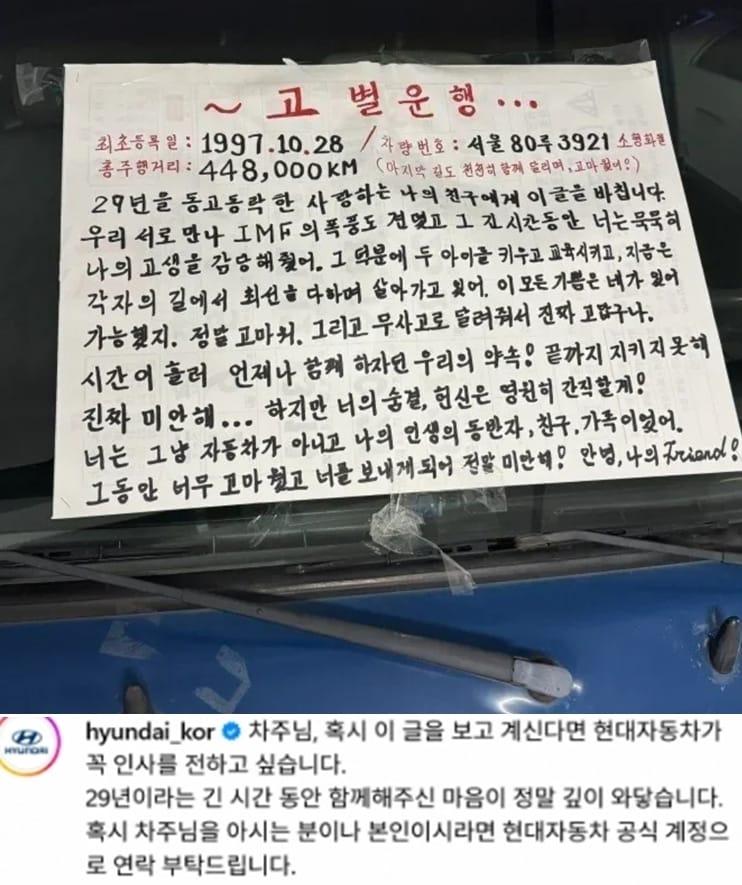 ~ 고 별 운 행 ...
최초등록일 : 1997.10.28 / 차량번호 : 서울 80루 3921 소형화물
총주행거리 : 448,000KM (마지막 길도 천천히 함께 달리며, 고마웠어!)
29년을 동고동락한 사랑하는 나의 친구에게 이글을 바칩니다.
우리 서로 만나 IMF의 폭풍도 견뎠고 그 긴 시간동안 너는 묵묵히
나의 고생을 감당해 줬어. 그 덕분에 두 아이를 키우고 교육시키고, 지금은
각자의 길에서 최선을 다하며 살아가고 있어. 이 모든 기쁨은 네가 있어
가능했지. 정말 고마워. 그리고 무사고로 달려줘서 진짜 고맙구나.
시간이 흘러 언제나 함께 하자던 우리의 약속! 끝까지 지키지 못해
진짜 미안해... 하지만 너의 숨결, 헌신은 영원히 간직할게!
너는 그냥 자동차가 아니고 나의 인생의 동반자, 친구, 가족이었어.
그동안 너무 고마웠고 너를 보내게 되어 정말 미안해! 안녕, 나의 Friend!
HYUNDAI
hyundai_kor 차주님, 혹시 이 글을 보고 계신다면 현대자동차가
꼭 인사를 전하고 싶습니다.
29년이라는 긴 시간 동안 함께해주신 마음이 정말 깊이 와닿습니다.
혹시 차주님을 아시는 분이나 본인이시라면 현대자동차 공식 계정으
로 연락 부탁드립니다.